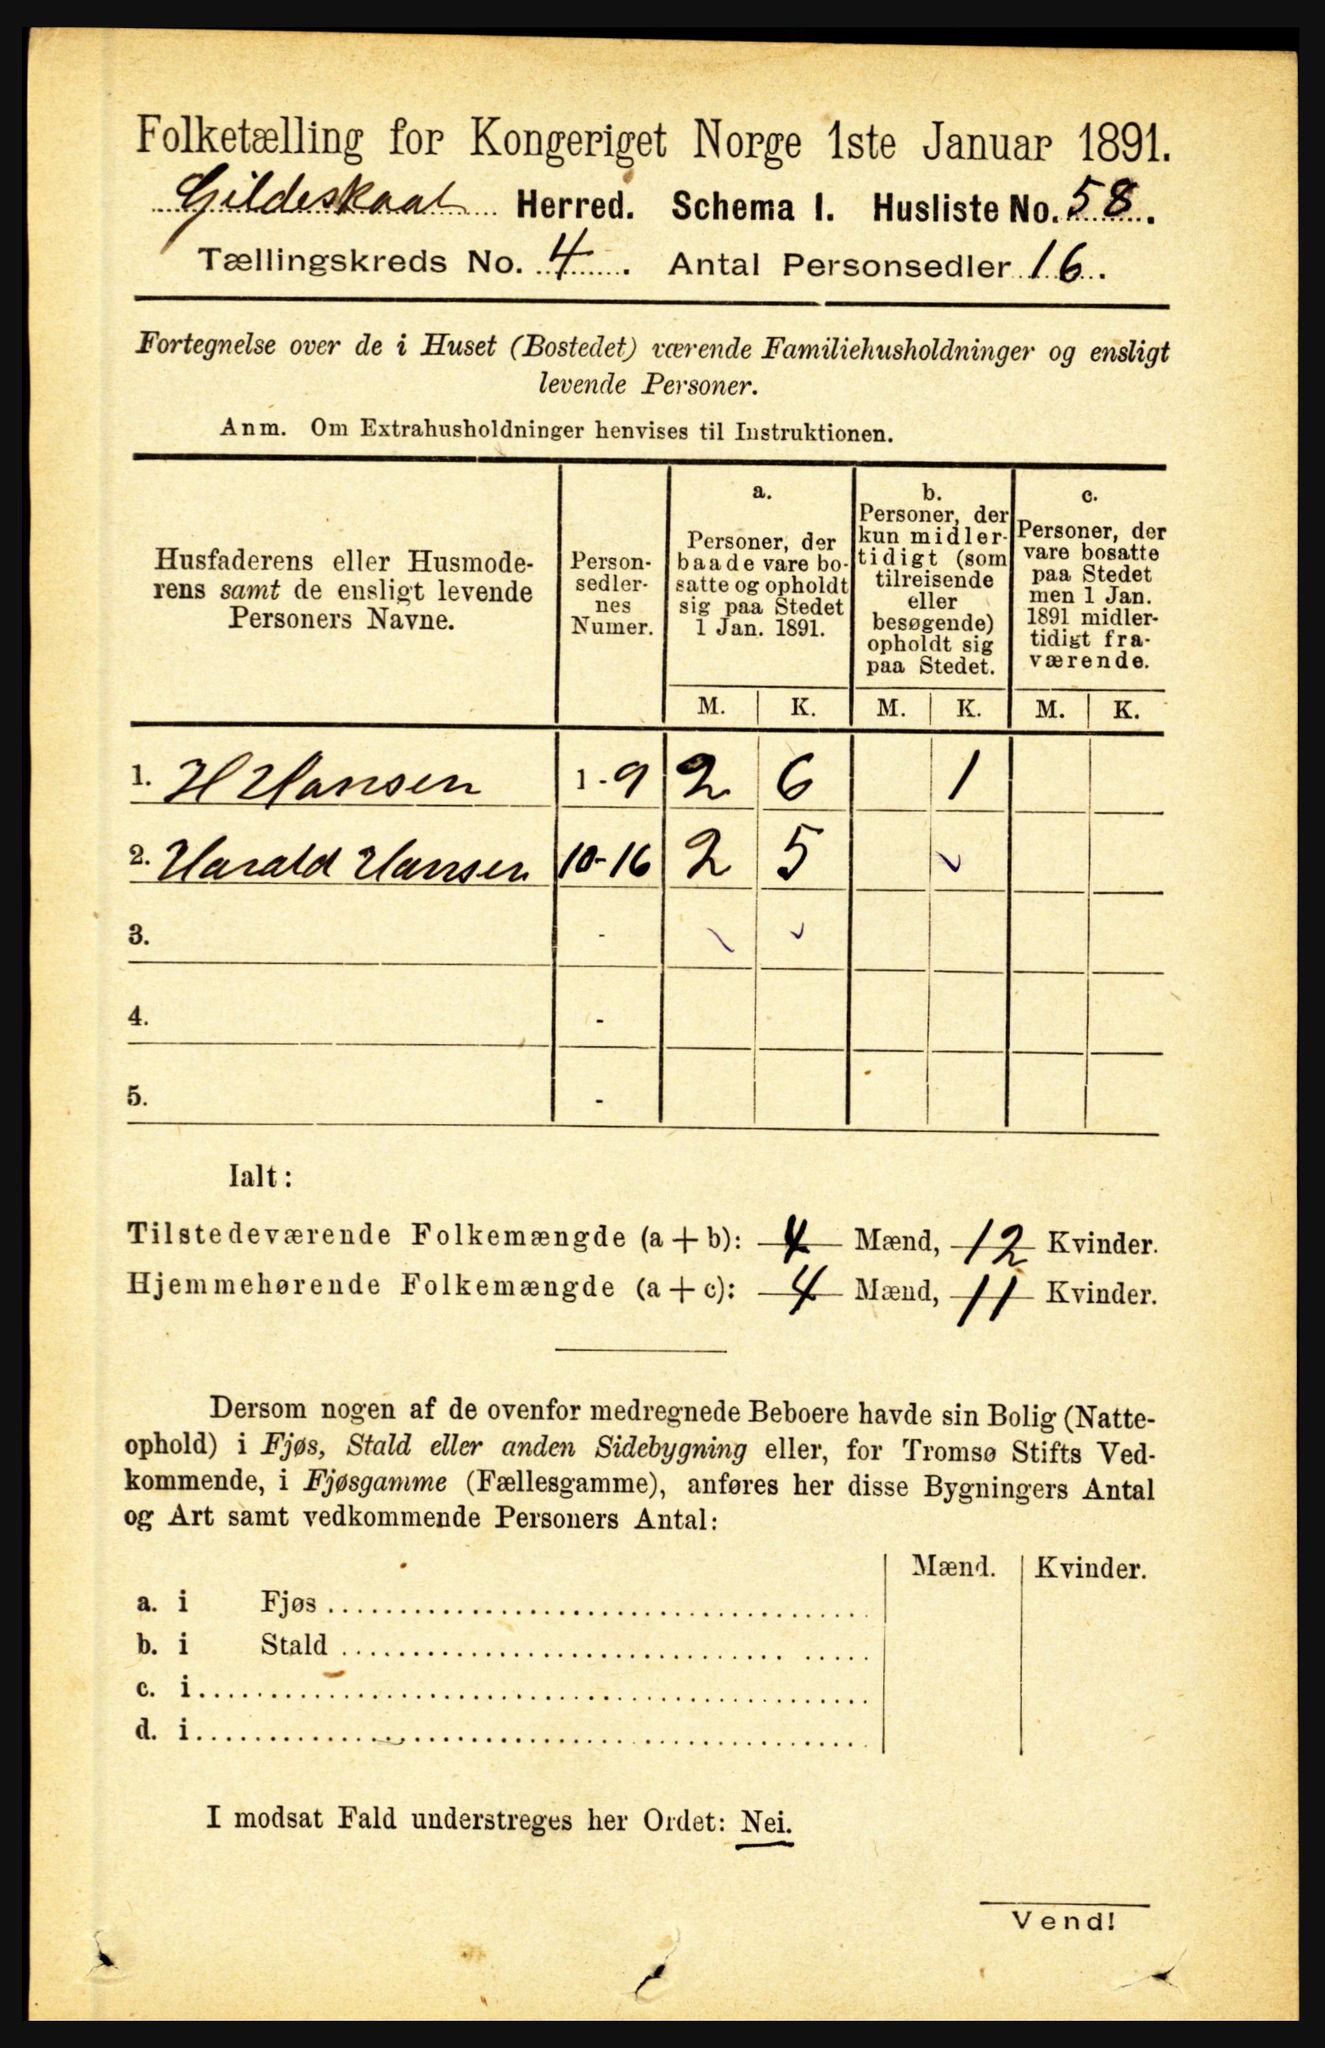 Folketælling for Kongeriget Norge 1ste Januar 1891.
Gildeskaal Herred. Schema I. Husliste No. 58.
Tællingskreds No. 4. Antal Personsedler 16.
Fortegnelse over de i Huset (Bostedet) værende Familiehusholdninger og ensligt
levende Personer.
Anm. Om Extrahusholdninger henvises til Instruktionen.
Husfaderens eller Husmode-
rens samt de ensligt levende
Personers Navne.
Person-
sedler-
nes
Numer.
a.
Personer, der
baade vare bo-
satte og opholdt
sig paa Stedet
1 Jan. 1891.
b.
Personer, der
kun midler-
tidigt (som
tilreisende
eller
besøgende)
opholdt sig
paa Stedet.
c.
Personer, der
vare bosatte
paa Stedet
men 1 Jan.
1891 midler-
tidigt fra-
værende.
M. K. M. K. M. K.
1. H Hansen 1-9 2 6 1
2. Harald Hansen 10-16 2 5
3. -
4. -
5. -
Ialt:
Tilstedeværende Folkemængde (a + b): 4 Mænd, 12 Kvinder.
Hjemmehørende Folkemængde (a + c): 4 Mænd, 11 Kvinder.
Dersom nogen af de ovenfor medregnede Beboere havde sin Bolig (Natte-
ophold) i Fjøs, Stald eller anden Sidebygning eller, for Tromsø Stifts Ved-
kommende, i Fjøsgamme (Fællesgamme), anføres her disse Bygningers Antal
og Art samt vedkommende Personers Antal:
Mænd. Kvinder.
a. i Fjøs
b. i Stald
c. i
d. i
I modsat Fald understreges her Ordet: Nei.
Vend!